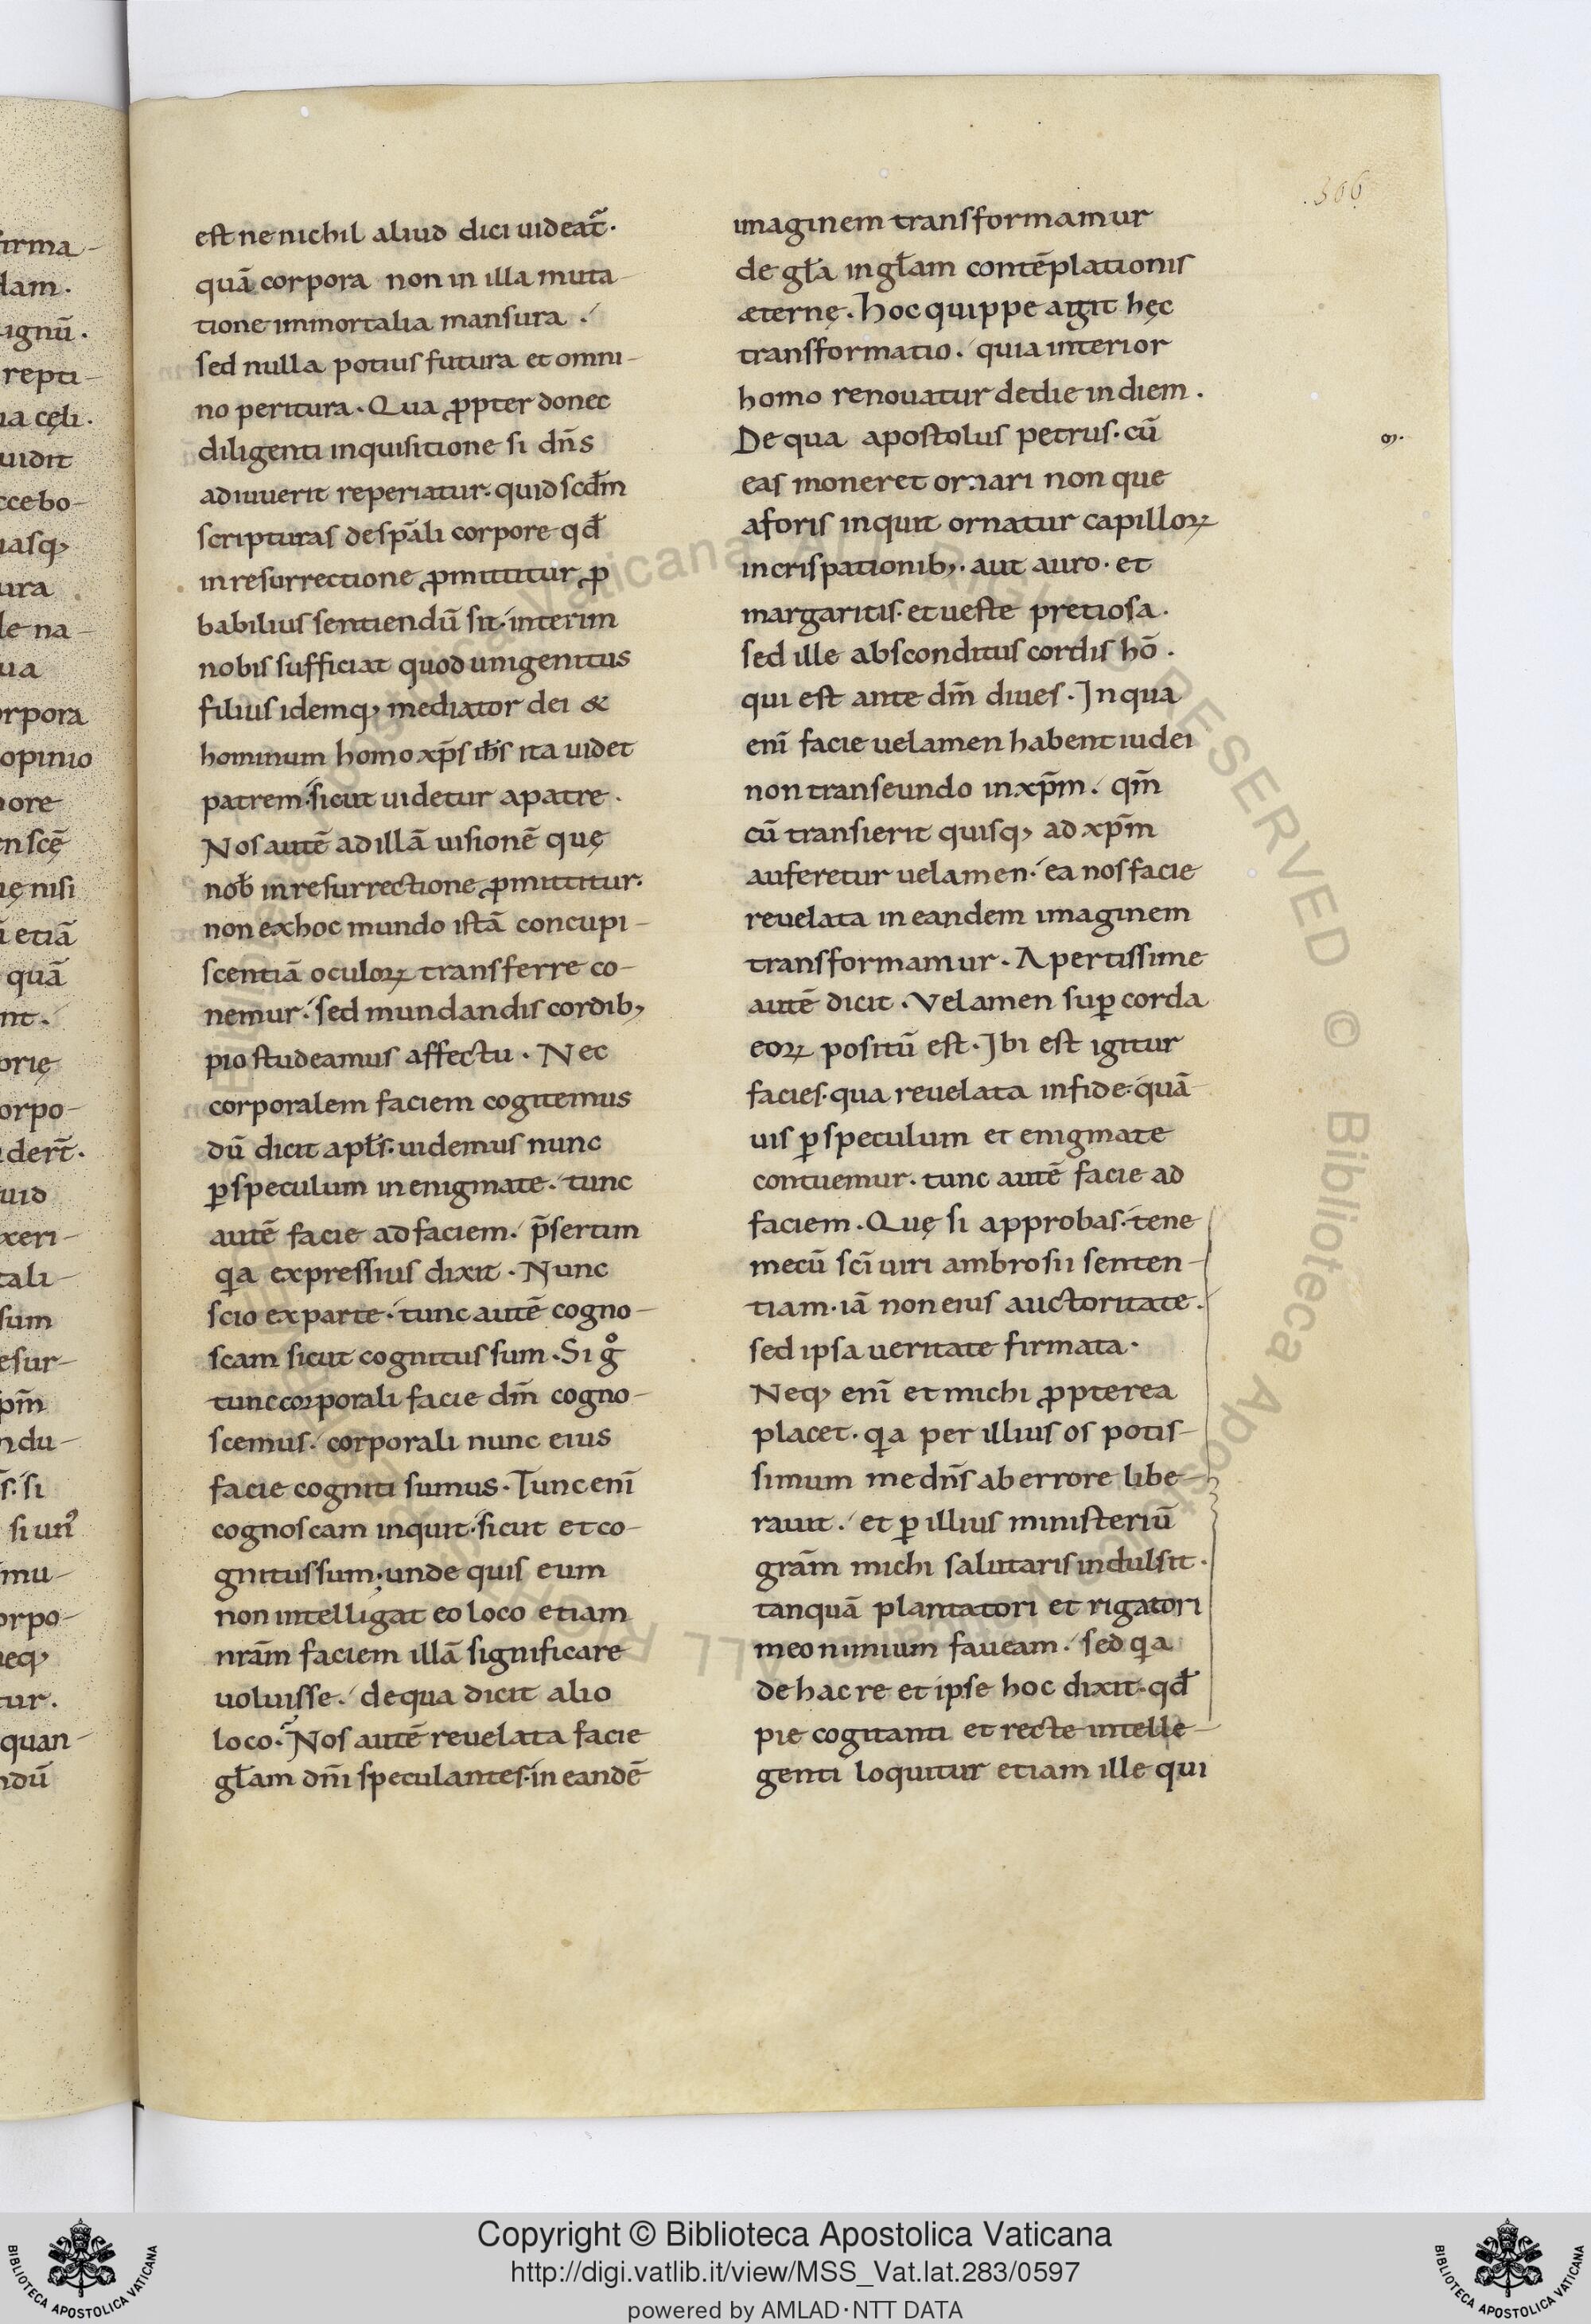 .306.
est ne nichil aliud dici uideat̃·
quā corpora non in illa muta-
tione immortalia mansura .
sed nulla potius futura et omni-
no peritura. Qua ꝓpter donec
diligenti inquisitione si dn̄s
adiuuerit reperiatur. quid scd̄m
scripturas de sp̄ali corpore qd̄
in resurrectione ꝓmittitur ꝓ
babilius sentiendū sit. interim
nobis sufficiat quod unigenitus
filius idemq; mediator dei &
hominum homo xp̄s ih̄s ita uidet
patrem. sicut uidetur a patre .
Nos autē ad illā uisionē quę
nob̄ in resurrectione ꝓmittitur.
non ex hoc mundo istā concupi-
scentiā oculoꝝ transferre co-
nemur. sed mundandis cordib;
pio studeamus affectu . Nec
corporalem faciem cogitemus
dū dicit apl̄s. uidemus nunc
ꝑ speculum in enigmate. tunc
autē facie ad faciem. p̄sertim
qͥa expressius dixit . Nunc
scio ex parte. tunc autē cogno-
scam sicut cognitus sum. Si gͦ
tunc corporali facie dm̄ cogno-
scemus. corporali nunc eius
facie cogniti sumus. Tunc enī
cognoscam inquit. sicut et co-
gnitus sum. unde quis eum
non intelligat eo loco etiam
nr̄am faciem illā significare
uoluisse. de qua dicit alio
loco. Nos autē reuelata facie
gl̄am dn̄i speculantes. in eandē
imaginem transformamur
de gl̄a in gl̄am contēplationis
æternę. Hoc quippe agit hęc
transformatio. quia interior
homo renouatur de die in diem .
De qua apostolus petrus. cū
eas moneret ornari non que
a foris inquit ornatur capilloꝝ
incrispationib;. aut auro. et
margaritis. et ueste pretiosa.
sed ille absconditus cordis hō .
qui est ante dm̄ diues. In qua
enī facie uelamen habent iudei
non transeundo in xp̄m. qm̄
cū transierit quisq; ad xp̄m
auferetur uelamen. ea nos facie
reuelata in eandem imaginem
transformamur. Apertissime
autē dicit . Velamen suꝑ corda
eoꝝ positū est. Ibi est igitur
facies. qua reuelata in fide. quā-
uis ꝑ speculum et enigmate
contuemur. tunc autē facie ad
faciem. Quę si approbas. tene
mecū sc̄i uiri ambrosii senten-
tiam. iā non eius auctoritate.
sed ipsa ueritate firmata.
Neq; enī et michi ꝓpterea
placet. qͥa per illius os potis-
simum me dn̄s ab errore libe-
rauit. et ꝑ illius ministeriū
gr̄am michi salutaris indulsit.
tanquā plantatori et rigatori
meo nimium faueam. sed qͥa
de hac re et ipse hoc dixit. qd̄
pie cogitanti et recte intelle-
genti loquitur etiam ille qui
Copyright © Biblioteca Apostolica Vaticana
http://digi.vatlib.it/view/MSS_Vat.lat.283/0597
powered by AMLAD·NTT DATA